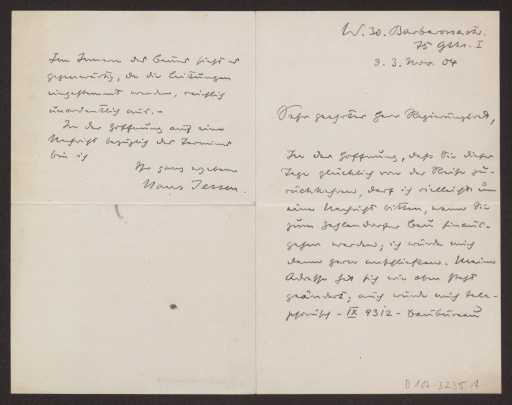 W. 30. Barbarossastr.
75 Gths. I
d. 3. Nov. 04
Sehr geehrter Herr Regierungsrat,
In der Hoffnung, daß Sie dieser
Tage glücklich von der Reise zu-
rückkehren, darf ich vielleicht um
eine Nachricht bitten, wann Sie
zum Zehlendorfer Bau hinaus-
gehen werden; ich würde mich
dann gern anschließen. Meine
Adresse hat sich wie oben steht
geändert; auch würde mich tele-
phonisch - IX 9312 - Baubureau
Im Innern des Baues sieht es
gegenwärtig, da die Leitungen
eingestemmt werden, reichlich
unordentlich aus. -
In der Hoffnung auf eine
Nachricht bezüglich des Termines
bin ich
Ihr ganz ergebener
Hans Jessen.